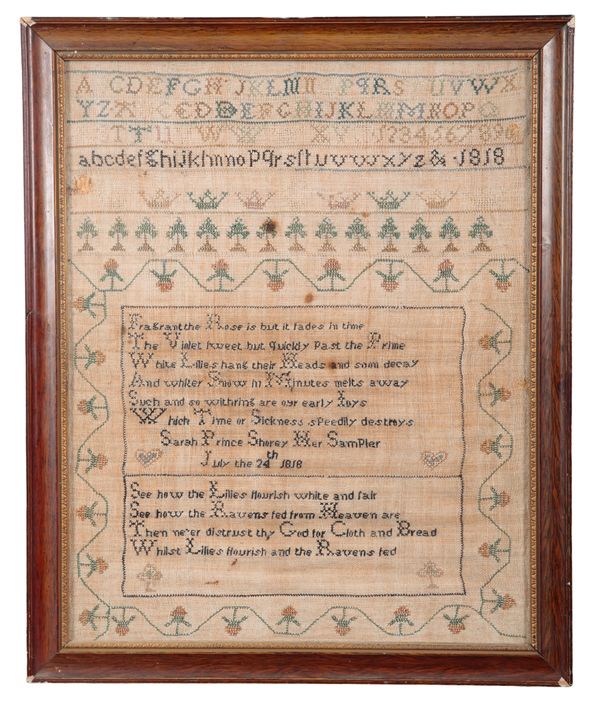 A CDEFGH JKLM PQRST UVWX
YZ CDDEFGHIJKLMNOPQ
T T U W X 123456789
abcdefghijklmnopqrsſtuvwxyz& 1818
Fragrant the Rose is but it fades in time
The Violet sweet but quickly Past the Prime
White Lilies hang their Heads and soon decay
And whiter Snow in Minutes melts away
Such and so withring are our early Joys
Which Time or Sickness speedily destroys
Sarah Prince Shorey Her Sampler
July the 24th 1818
See how the Lilies flourish white and fair
See how the Ravens fed from Heaven are
Then ne'er distrust thy God for Cloth and Bread
Whilst Lilies flourish and the Ravens fed